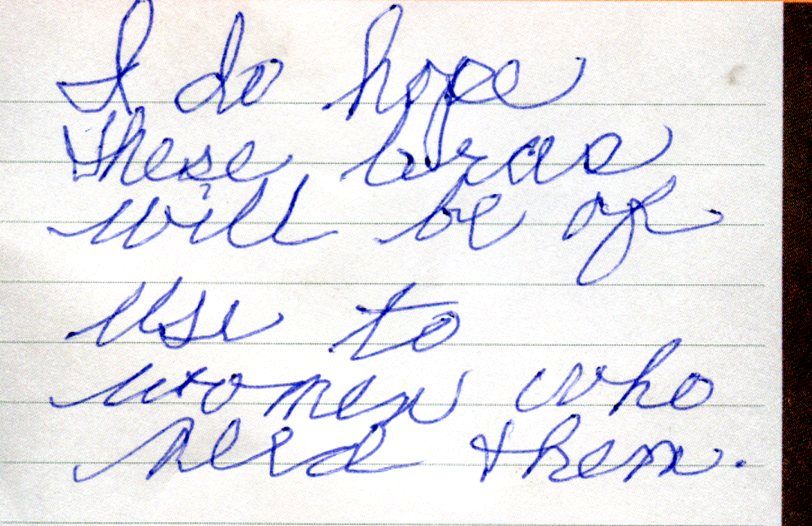 I do hope
these bras
will be of
use to
women who
need them.